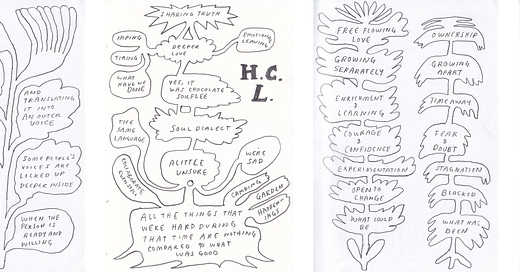 AND
TRANSLATING
IT INTO
AN OUTER
VOICE
SOME PEOPLE'S
VOICES ARE
LOCKED UP
DEEPER INSIDE
WHEN THE
PERSON IS
READY AND
WILLING
SHARING TRUTH
HOPING
TIMING
WHAT HAVE WE
DONE
DEEPER
LOVE
EMOTIONAL
CLEANING
YES, IT
WAS CHOCOLATE
SOUFLEE
H.C.
L.
THE
SAME
LANGUAGE
SOUL DIALECT
A LITTLE
UNSURE
WE'RE
SAD
CAMPING &
GARDEN
HAPPEN-
INGS
ALL THE THINGS THAT
WERE HARD DURING
THAT TIME ARE NOTHING
COMPARED TO WHAT
WAS GOOD
FREE FLOWING
LOVE
GROWING
SEPARATELY
ENRICHMENT &
LEARNING
COURAGE
&
CONFIDENCE
EXPERIMENTATION
OPEN TO
CHANGE
WHAT COULD
BE
OWNERSHIP
GROWING
APART
TIME AWAY
FEAR
&
DOUBT
STAGNATION
BLOCKED
WHAT HAS
BEEN